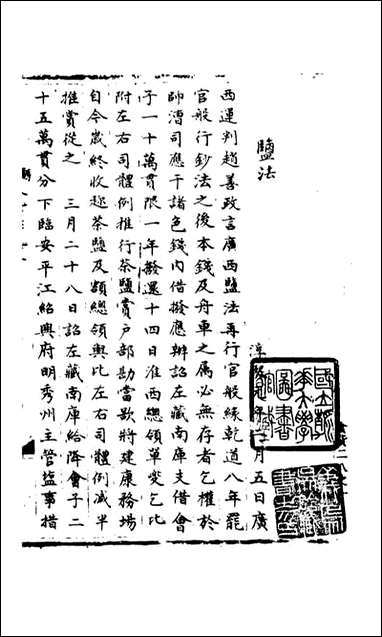 鹽法
月五日廣
西運判趙善政言廣西鹽法再行官般緣乾道八年罷
官般行鈔法之後本錢及舟車之屬必無存者乞權於
帥漕司應干諸色錢内借撥應辦詔左藏南庫支借會
子一十萬貫限一年撥還十四日淮西總領單夔乞比
附左右司體例推行茶鹽賞户部勘當欲將建康務場
自今歲終收趂茶鹽及額總領與比左右司體例减半
推賞從之 三月二十八日詔左藏南庫給降會子二
十五萬貫分下臨安平江紹興府明秀州主管盐事措